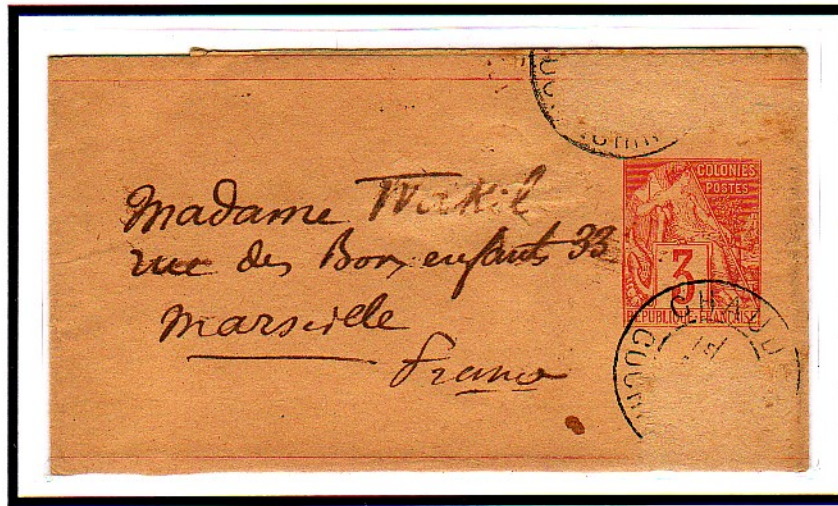 COLONIES
POSTES
3
RÉPUBLIQUE FRANÇAISE
Madame
rue des Bons enfants 33
Marseille
France